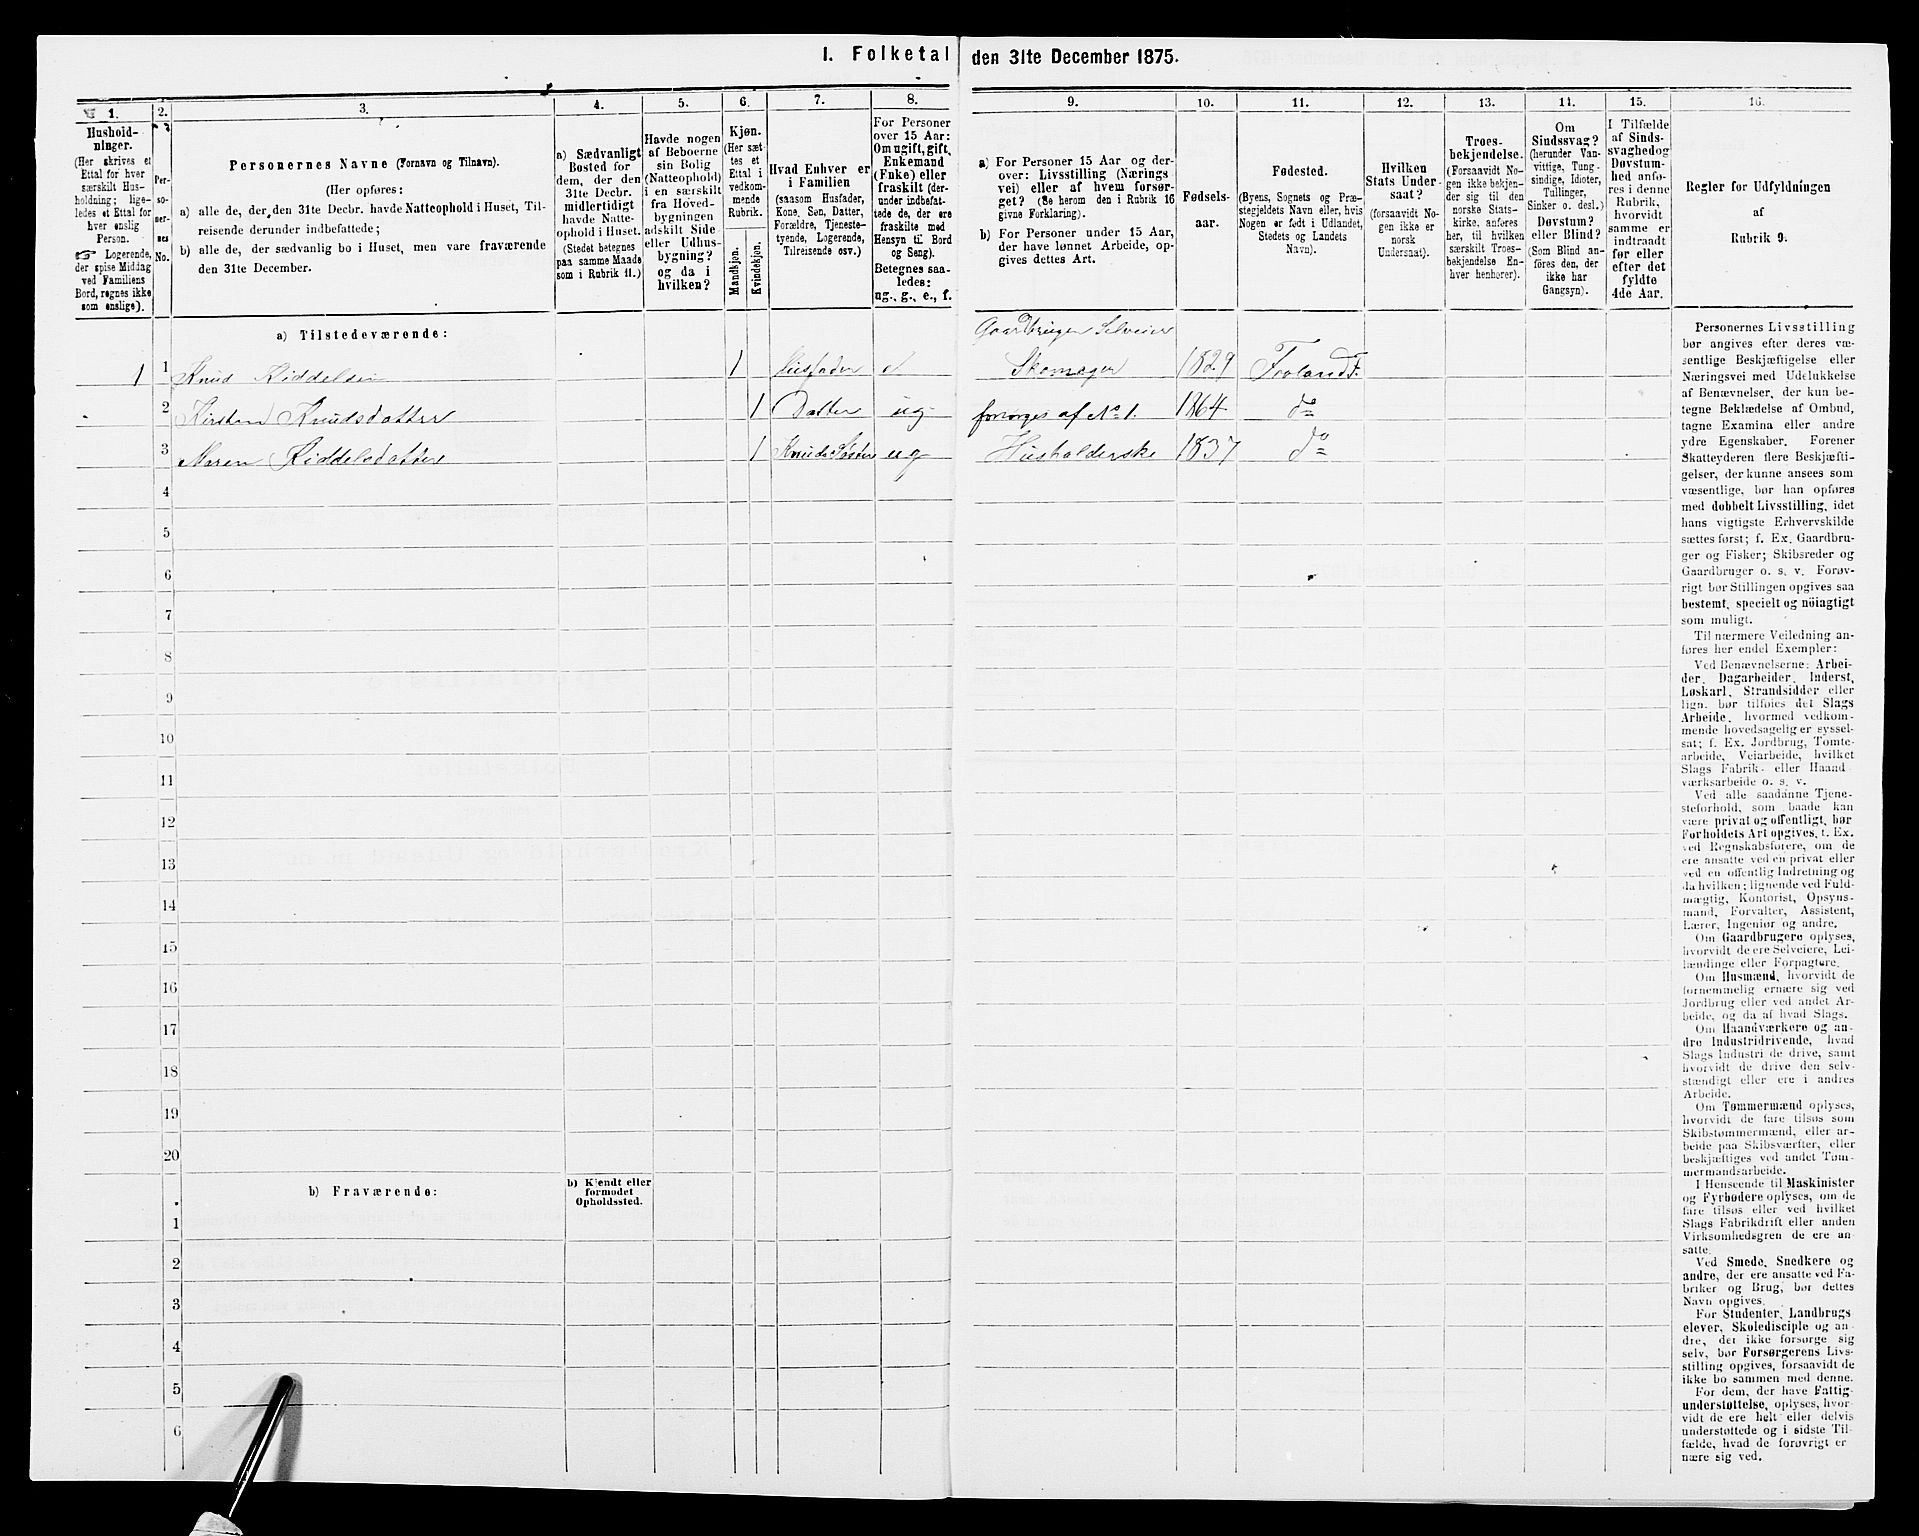 I. Folketal den 31te December 1875.
1.
Hushold-
ninger.
(Her skrives et
Ettal for hver
særskilt Hus-
holdning; lige-
ledes et Ettal for
hver enslig
Person.
☞ Logerende,
der spise Middag
ved Familiens
Bord, regnes ikke
som enslige).
2.
Per-
so-
ner-
nes
No.
3.
Personernes Navne (Fornavn og Tilnavn).
(Her opføres:
a) alle de, der den 31te Decbr. havde Natteophold i Huset, Til-
reisende derunder indbefattede;
b) alle de, der sædvanlig bo i Huset, men vare fraværende
den 31te December.
4.
a) Sædvanligt
Bosted for
dem, der den
31te Decbr.
midlertidigt
havde Natte-
ophold i Huset.
(Stedet betegnes
paa samme Maade
som i Rubrik 11.)
5.
Havde nogen
af Beboerne
sin Bolig
(Natteophold)
i en særskilt
fra Hoved-
bygningen
adskilt Side-
eller Udhus-
bygning?
og da i
hvilken?
6.
Kjøn.
(Her sæt-
tes et
Ettal i
vedkom-
mende
Rubrik.
Mandkjøn.
Kvindekjøn.
7.
Hvad Enhver er
i Familien
(saasom Husfader,
Kone, Søn, Datter,
Forældre, Tjeneste-
tyende, Logerende,
Tilreisende osv.)
8.
For Personer
over 15 Aar:
Om ugift, gift,
Enkemand
(Enke) eller
fraskilt (der-
under indbefat-
tede de, der ere
fraskilte med
Hensyn til Bord
og Seng).
Betegnes saa-
ledes:
ug., g., e., f.
9.
a) For Personer 15 Aar og der-
over: Livsstilling (Nærings-
vei) eller af hvem forsør-
get? (Se herom den i Rubrik 16
givne Forklaring).
b) For Personer under 15 Aar,
der have lønnet Arbeide, op-
gives dettes Art.
10.
Fødsels-
aar.
11.
Fødested.
(Byens, Sognets og Præ-
stegjeldets Navn eller, hvis
Nogen er født i Udlandet,
Stedets og Landets
Navn).
12.
Hvilken
Stats Under-
saat?
(forsaavidt No-
gen ikke er
norsk
Undersaat).
13.
Troes-
bekjendelse.
(Forsaavidt No-
gen ikke bekjen-
der sig til den
norske Stats-
kirke, anføres
her, til hvilken
særskilt Troes-
bekjendelse En-
hver henhører).
14.
Om
Sindssvag?
(herunder Van-
vittige, Tung-
sindige, Idioter,
Tullinger,
Sinker o. desl.)
Døvstum?
eller Blind?
(Som Blind an-
føres den, der
ikke har
Gangsyn).
15.
I Tilfælde
af Sinds-
svaghed og
Døvstum-
hed anfø-
res i denne
Rubrik,
hvorvidt
samme er
indtraadt
før eller
efter det
fyldte
4de Aar.
16.
Regler for Udfyldningen
af
Rubrik 9.
a) Tilstedeværende:
Gaardbruger Selveier
1 1 Knud Riddelsen 1 Husfader e Skomager 1829 Froland P.
2 Kirsten Knudsdatter 1 Datter ug forsørges af No 1. 1864 do
3 Maren Riddelsdatter 1 Knuds Søster ug Husholderske 1837 do
4
5
6
7
8
9
10
11
12
13
14
15
16
17
18
19
20
b) Fraværende:
b) Kjendt eller
formodet
Opholdssted.
1
2
3
4
5
6
Personernes Livsstilling
bør angives efter deres væ-
sentlige Beskjæftigelse eller
Næringsvei med Udelukkelse
af Benævnelser, der kun be-
tegne Beklædelse af Ombud,
tagne Examina eller andre
ydre Egenskaber. Forener
Skatteyderen flere Beskjæfti-
gelser, der kunne ansees som
væsentlige, bør han opføres
med dobbelt Livsstilling, idet
hans vigtigste Erhvervskilde
sættes først; f. Ex. Gaardbru-
ger og Fisker; Skibsreder og
Gaardbruger o. s. v. Forøv-
rigt bør Stillingen opgives saa
bestemt, specielt og nöiagtigt
som muligt.
Til nærmere Veiledning an-
føres her endel Exempler:
Ved Benævnelserne: Arbei-
der, Dagarbeider, Inderst,
Løskarl, Strandsidder eller
lign. bør tilføies det Slags
Arbeide, hvormed vedkom-
mende hovedsagelig er syssel-
sat; f. Ex. Jordbrug, Tomte-
arbeide, Veiarbeide, hvilket
Slags Fabrik- eller Haand-
værksarbeide o. s. v.
Ved alle saadanne Tjene-
steforhold, som baade kan
være privat og offentligt, bør
Forholdets Art opgives, t. Ex.
ved Regnskabsførere, om de
ere ansatte ved en privat eller
ved en offentlig Indretning og
da hvilken; lignende ved Fuld-
mægtig, Kontorist, Opsyns-
mand, Forvalter, Assistent,
Lærer, Ingeniør og andre.
Om Gaardbrugere oplyses,
hvorvidt de ere Selveiere, Lei-
lændinge eller Forpagtere.
Om Husmænd, hvorvidt de
fornemmelig ernære sig ved
Jordbrug eller ved andet Ar-
beide, og da af hvad Slags.
Om Haandværkere og an-
dre Industridrivende, hvad
Slags Industri de drive, samt
hvorvidt de drive den selv-
stændigt eller ere i andres
Arbeide.
Om Tømmermænd oplyses,
hvorvidt de fare tilsøs som
Skibstømmermænd, eller ar-
beide paa Skibsværfter, eller
beskjæftiges ved andet Tøm-
mermandsarbeide.
I Henseende til Maskinister
og Fyrbødere oplyses, om de
fare tilsøs eller ved hvilket
Slags Fabrikdrift eller anden
Virksomhedsgren de ere an-
satte.
Ved Smede, Snedkere og
andre, der ere ansatte ved Fa-
briker og Brug, bør dettes
Navn opgives.
For Studenter, Landbrugs
elever, Skoledisciple og an-
dre, der ikke forsørge sig
selv, bør Forsørgerens Livs-
stilling opgives, forsaavidt de
ikke bo sammen med denne.
For dem, der have Fattig-
understøttelse, oplyses, hvor-
vidt de ere helt eller delvis
understøttede og i sidste Til-
fælde, hvad de forøvrigt er
nære sig ved.